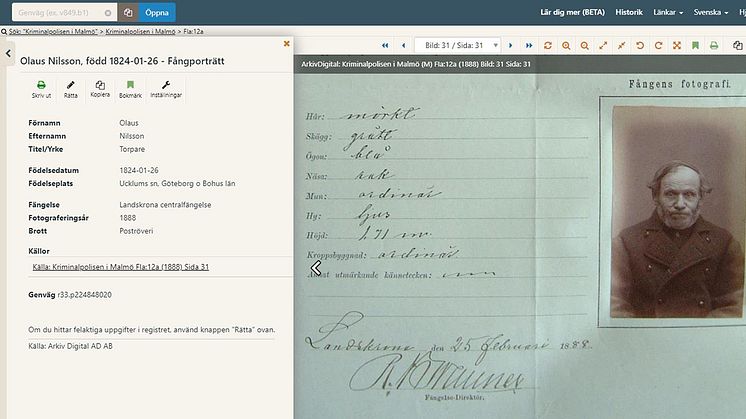 Genväg (ex. v849.b1)
Öppna
Lär dig mer (BETA) Historik Länkar Svenska
Sök: "Kriminalpolisen i Malmö" > Kriminalpolisen i Malmö > FIa:12a
Olaus Nilsson, född 1824-01-26 - Fångporträtt
Skriv ut Rätta Kopiera Bokmärk Inställningar
Förnamn Olaus
Efternamn Nilsson
Titel/Yrke Torpare
Födelsedatum 1824-01-26
Födelseplats Ucklums sn, Göteborg o Bohus län
Fängelse Landskrona centralfängelse
Fotograferingsår 1888
Brott Poströveri
Källor
Källa: Kriminalpolisen i Malmö FIa:12a (1888) Sida 31
Genväg r33.p224848020
Om du hittar felaktiga uppgifter i registret, använd knappen "Rätta" ovan.
Källa: Arkiv Digital AD AB
Bild: 31 / Sida: 31
ArkivDigital: Kriminalpolisen i Malmö (M) FIa:12a (1888) Bild: 31 Sida: 31
Hår: mörkt
Skägg: grått
Ögon: blå
Näsa: rak
Mun: ordinär
Hy: ljus
Höjd: 1.71 m.
Kroppsbyggnad: ordinär
Annat utmärkande kännetecken:
Landskrona den 25 februari 1888.
Fängelse-Direktör.
Fångens fotografi.